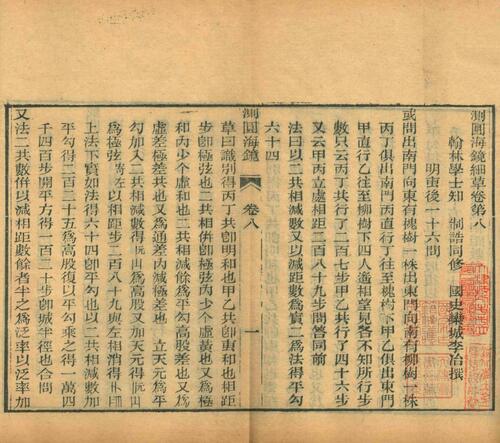 測圓海鏡細草卷第八
翰林學士知 制誥同修 國史欒城李冶撰
明叀後一十六問
或問出南門向東有槐樹一株出東門向南有柳樹一株
丙丁俱出南門丙直行丁往至槐樹下甲乙俱出東門
甲直行乙往至柳樹下四人遙相望見各不知所行步
數只云丙丁共行了二百七步甲乙共行了四十六步
又云甲丙立處相距二百八十九步問答同前
法曰以二共相減數又以減相距數爲實二爲法得平勾
六十四
測圓海鏡 卷八 一
草曰識別得丙丁共卽明和也甲乙共卽叀和也相距
步卽極弦也二共相併卽極弦內少个虛黃也又爲極
和內少个虛和也二共相減數卽高股平勾差也又爲
虛差極差共也又爲通差內減極差也 立天元爲平
勾加入二共相減數得爲高股又加天元得
爲極弦寄左以相距步二百八十九與左相消得
上法下實如法得六十四卽平勾也以二共相減數加
平勾得二百二十五爲高股復以平勾乘之得一萬四
千四百步開平方得一百二十步卽城半徑也合問
又法二共數併以減相距數餘者半之爲泛率以泛率加